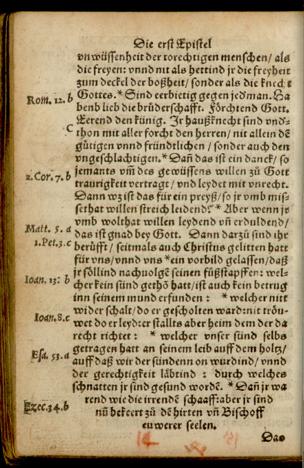 Die erst Epistel
vnwüssenheit der torechtigen menschen/ als
die freyen: vnnd nit als hettind jr die freyheit
zum deckel der boßheit/ sonder als die knecht
Gottes. * Sind eerbietig gegen jedman. Ha
Rom. 12. b
bend lieb die brüderschafft. Förchtend Gott.
Eerend den künig. Jr haußknecht sind vnd-
C
thon mit aller forcht den herren/ nit allein dē
gütigen vnnd fründtlichen/ sonder auch den
vngeschlachtigen. * Dañ das ist ein danck/ so
2. Cor. 7. b
jemants vm̄ des gewüssens willen zů Gott
traurigkeit vertragt/ vnd leydet mit vnrecht.
Dann wz ist das für ein preyß/ so jr vmb mis-
sethat willen streich leidend? * Aber wenn jr
vmb wolthat willen leydend vn̄ erduldend/
Matt. 5. a
das ist gnad bey Gott. Dann darzů sind jhr
1. Pet. 3. c
berüfft/ seitmals auch Christus gelitten hatt
für vns/ vnnd vns * ein vorbild gelassen/ daß
jr söllind nachuolgē seinen fůßstapffen: wel-
Ioan. 13. b
cher kein sünd gethō hatt/ ist auch kein betrug
inn seinem mund erfunden: * welcher nitt
wider schalt/ do er gescholten ward: nit tröu-
Ioan. 8. c
wet do er leyd: er stallts aber heim dem der da
recht richtet: * welcher vnser sünd selbs
getragen hatt an seinem leib auff dem holtz/
Esa. 53. a
auff daß wir der sünden on wurdind/ vnnd
der gerechtigkeit läbtind: durch welches
schnatten jr sind gesund wordē. * Dañ jr wa
rend wie die irrendē schaaff: aber jr sind
Ezec. 34. b
nū bekeert zů dē hirten vn̄ Bischoff
euwerer seelen.